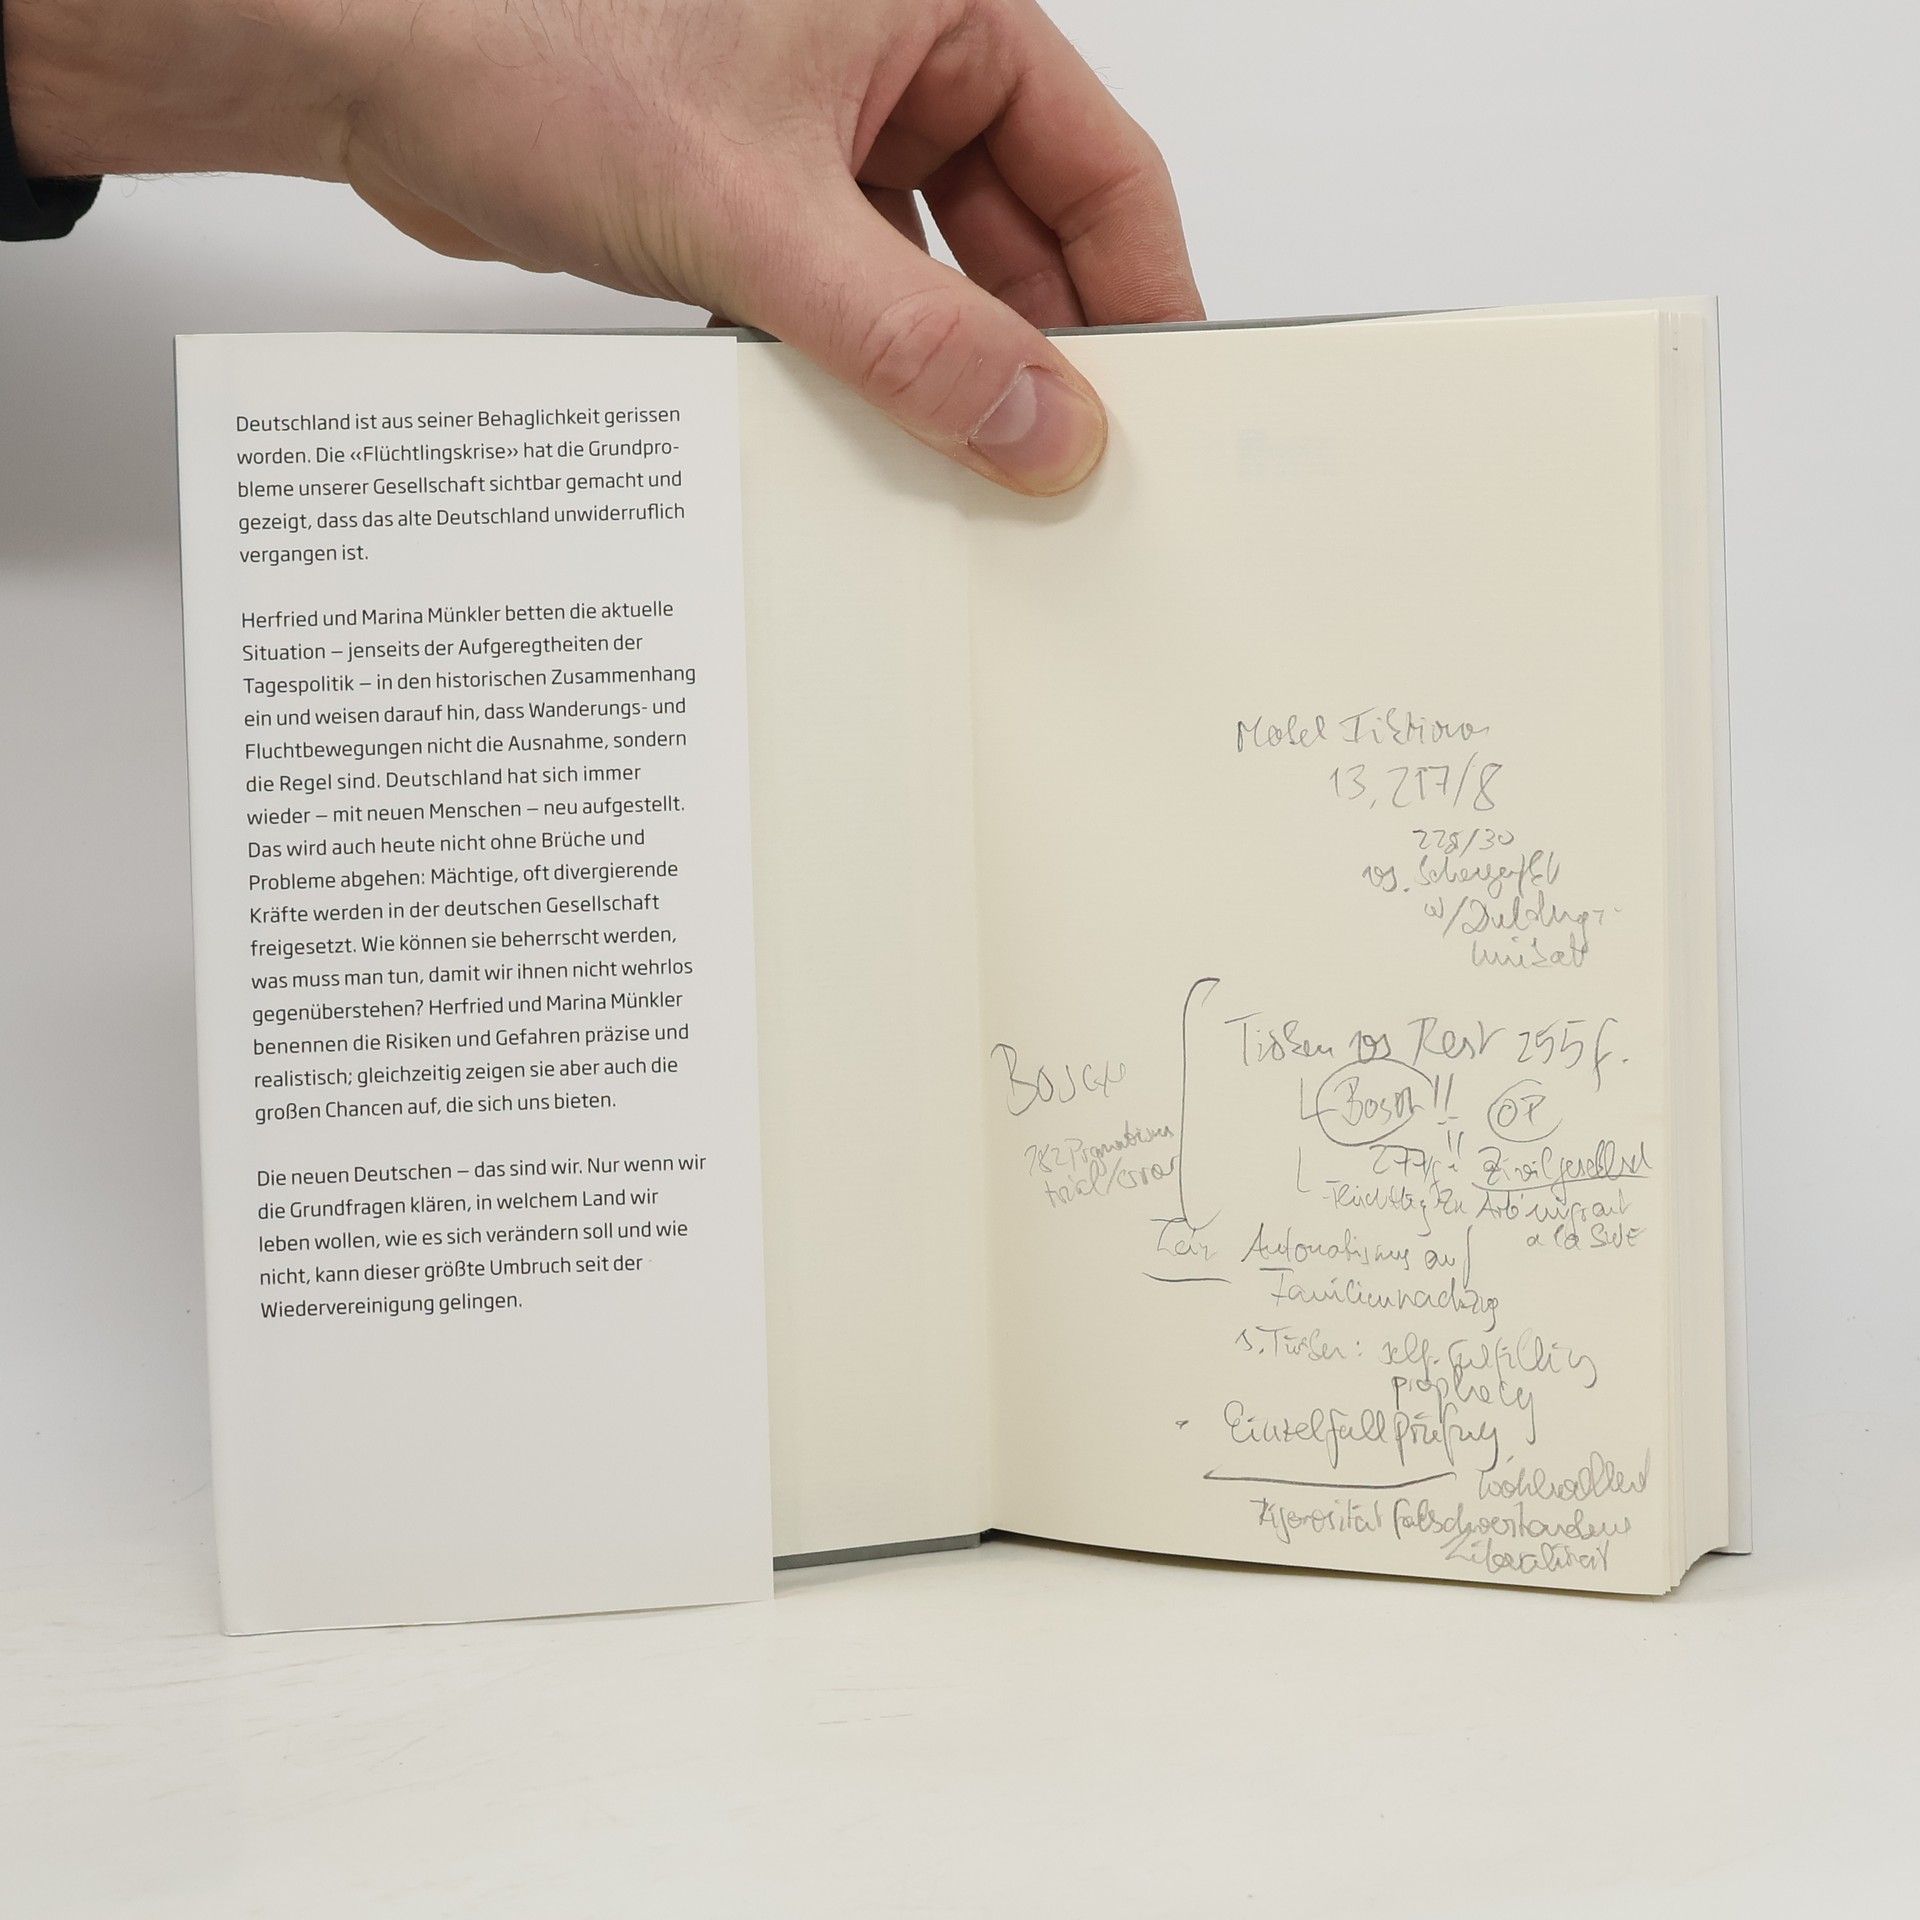 Deutschland ist aus seiner Behaglichkeit gerissen
worden. Die ‹‹Flüchtlingskrise›› hat die Grundpro-
bleme unserer Gesellschaft sichtbar gemacht und
gezeigt, dass das alte Deutschland unwiderruflich
vergangen ist.
Herfried und Marina Münkler betten die aktuelle
Situation – jenseits der Aufgeregtheiten der
Tagespolitik – in den historischen Zusammenhang
ein und weisen darauf hin, dass Wanderungs- und
Fluchtbewegungen nicht die Ausnahme, sondern
die Regel sind. Deutschland hat sich immer
wieder – mit neuen Menschen – neu aufgestellt.
Das wird auch heute nicht ohne Brüche und
Probleme abgehen: Mächtige, oft divergierende
Kräfte werden in der deutschen Gesellschaft
freigesetzt. Wie können sie beherrscht werden,
was muss man tun, damit wir ihnen nicht wehrlos
gegenüberstehen? Herfried und Marina Münkler
benennen die Risiken und Gefahren präzise und
realistisch; gleichzeitig zeigen sie aber auch die
großen Chancen auf, die sich uns bieten.
Die neuen Deutschen – das sind wir. Nur wenn wir
die Grundfragen klären, in welchem Land wir
leben wollen, wie es sich verändern soll und wie
nicht, kann dieser größte Umbruch seit der
Wiedervereinigung gelingen.
13, 217/8
vs Rest 255 f.
277f!! Zivilgesellsch
trial/error
Automatismus auf
Familiennachzug
self-fulfilling
prophecy
Einzelfallprüfung
Wohlwollend
falschverstandene
Liberalität